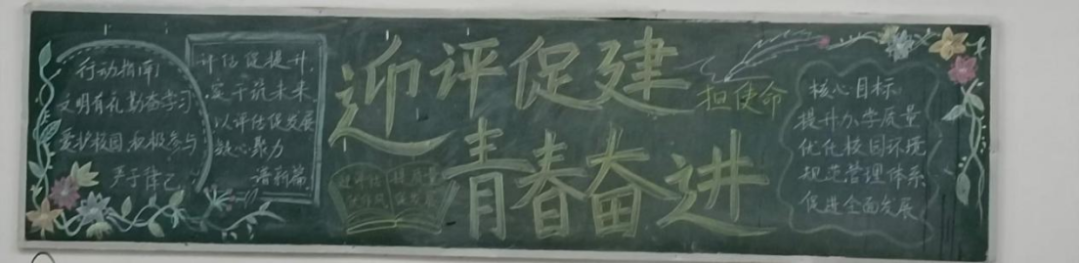 行动指南:
文明有礼 勤奋学习
爱护校园 积极参与
严于律己
评估促提升,
实干筑未来
以评估促发展
凝心聚力
谱新篇
迎评促建
担使命
青春奋进
核心目标:
提升办学质量
优化校园环境
规范管理体系
促进全面发展